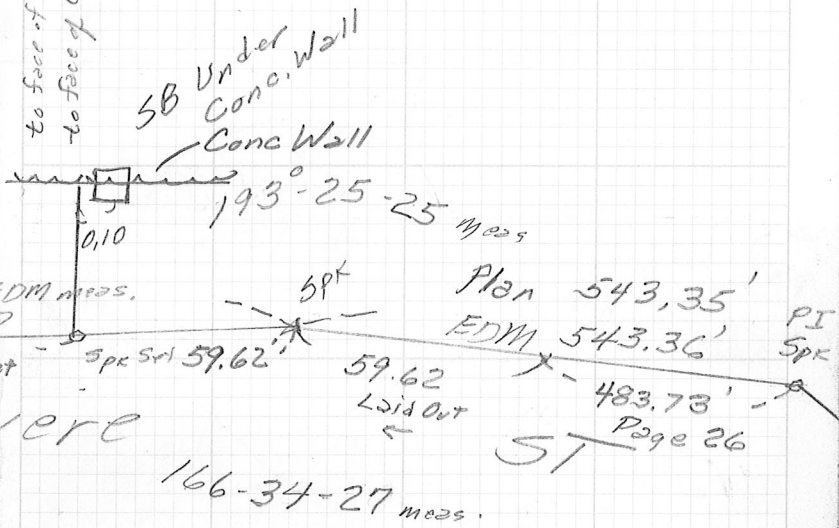 to face of
to face of
SB Under
Conc. Wall
Conc Wall
193°-25-25 meas
0,10
EDM meas.
Spk
Plan 543,35'
EDM 543.36'
PI
Spk
Spk Set 59.62'
59.62
Laid Out
←
483.73'
Page 26
ere
ST
166-34-27 meas.